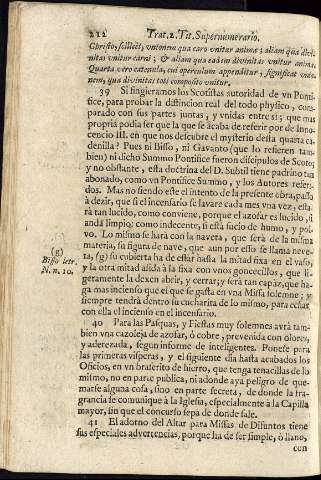 212 Trat. 2. Tit. Supernumerario.
Christo, scilicèt, vnionem qua caro vnitur animæ; aliam qua divinitas
nitas vnitur carni; & aliam qua eadem divinitas vnitur animæ.
Quarta verò catenula, cui operculum appenditur, significat vnio-
nem, qua divinitas toti composito vnitur.
39 Si singieramos los Scotistas autoridad de vn Ponti-
fice, para probar la distincion real del todo physico, com-
parado con sus partes juntas, y vnidas entre sì; que mas
propria podia ser que la que se acaba de referir por de Inno-
cencio III. en que nos descubre el mysterio desta quarta ca-
denilla? Pues ni Bisso, ni Gavanto (que lo refieren tam-
bien) ni dicho Summo Pontifice fueron discipulos de Scoto;
y no obstante, esta doctrina del D. Subtil tiene padrino tan
abonado, como vn Pontifice Summo, y los Autores referi-
dos. Mas no siendo este el intento de la presente obra, passo
à dezir, que si el incensario se lavare cada mes vna vez, esta-
rà tan lucido, como conviene, porque el azofar es lucido, si
andà limpio; como indecente, si està sucio de humo, y pol-
vo. Lo mismo se harà con la naveta, que serà de la misma
materia, su figura de nave, que aun por esso se llama nave-
ta, (g) su cubierta ha de estàr hasta la mitad fixa en el vaso,
y la otra mitad asida à la fixa con vnos goncecillos, que li-
geramente la dexen abrir, y cerrar; y serà tan capàz, que ha-
ga mas incienso que el que se gasta en vna Missa solemne; y
siempre tendrà dentro su cucharita de lo mismo, para echar
con ella el incienso en el incensario.
(g)
Bisso letr.
N. n. 10.
40 Para las Pasquas, y Fiestas muy solemnes avrà tam-
bien vna cazoleja de azofar, ò cobre, prevenida con olores,
y aderezada, segun informe de inteligentes. Ponese para
las primeras visperas, y el siguiente dia hasta acabados los
Oficios, en vn braserito de hierro, que tenga tenacillas de lo
mismo, no en parte publica, ni adonde aya peligro de que-
marse alguna cosa, sino en parte secreta, de donde la fra-
grancia se comunique à la Iglesia, especialmente à la Capilla
mayor, sin que el concurso sepa de donde sale.
41 El adorno del Altar para Missas de Difuntos tiene
sus especiales advertencias, porque ha de ser simple, ò llano,
con